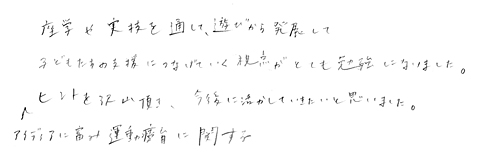 座学や実技を通して、遊びから発展して
子どもたちの支援につなげていく視点がとても勉強になりました。
ヒントを沢山頂き、今後に活かしていきたいと思いました。
アイディアに富み 運動療育に関する